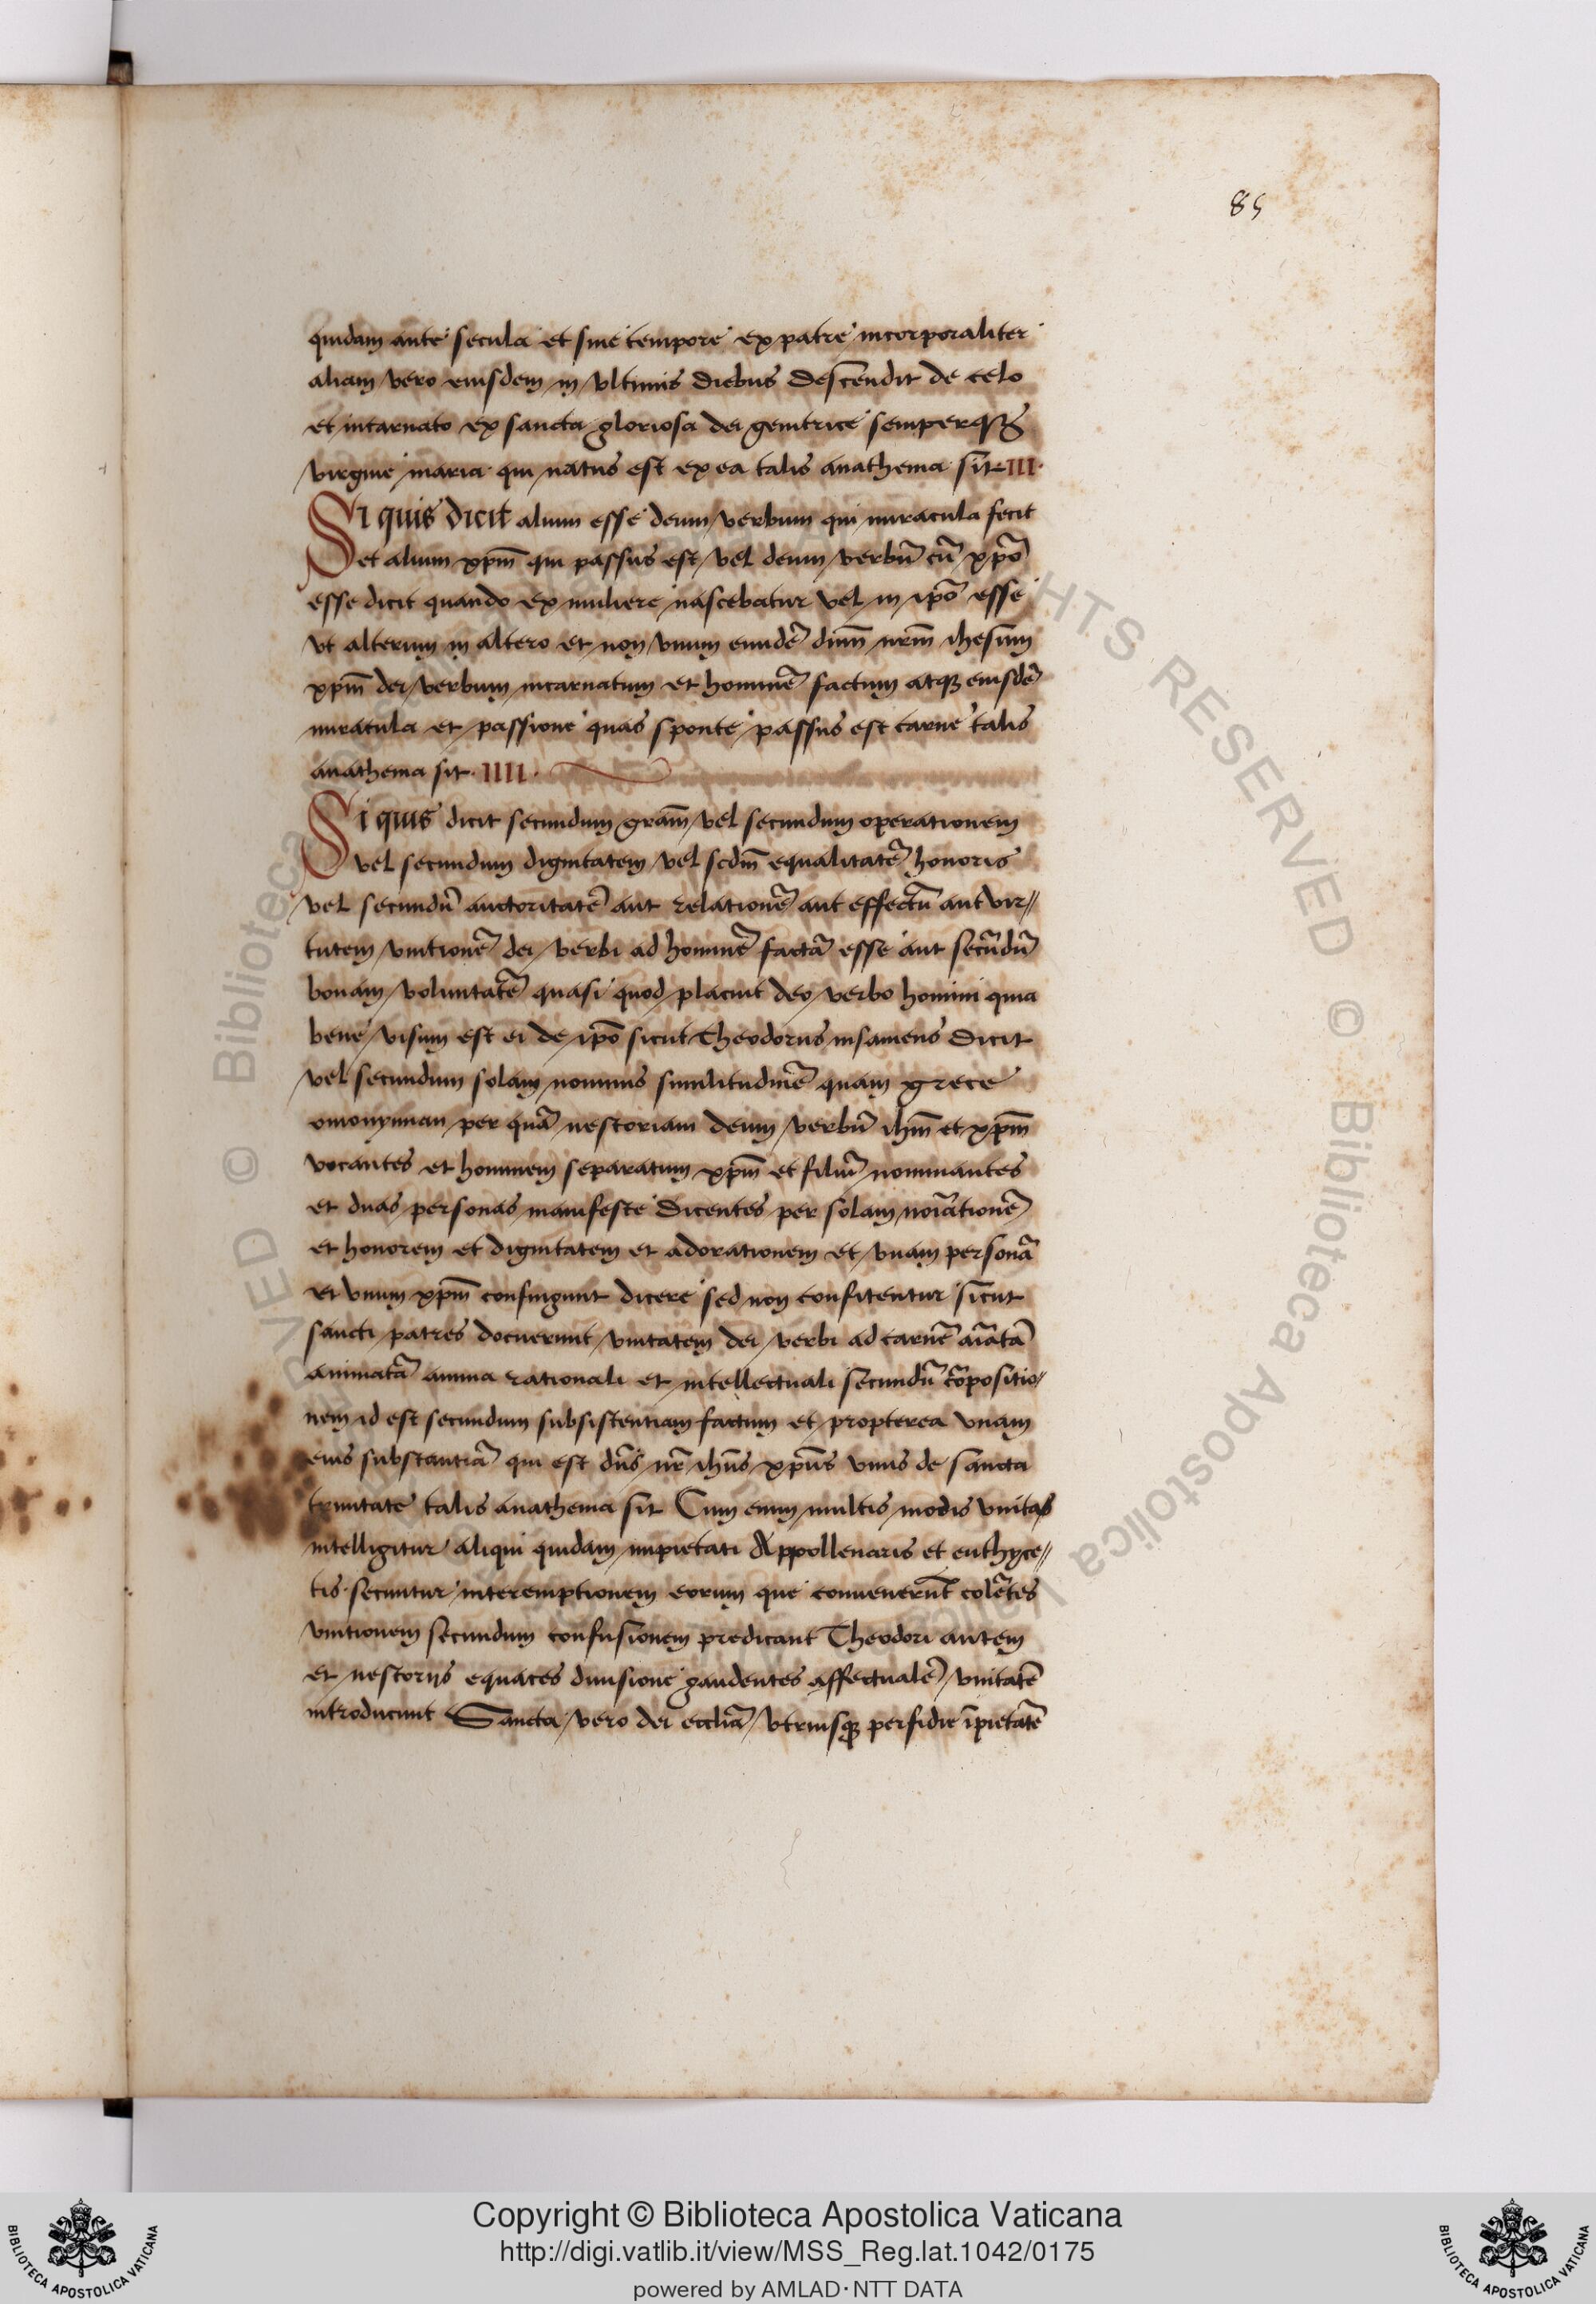 85
quidam ante secula et sine tempore ex patre incorporaliter
aliam vero eiusdem in vltimis diebus descendit de celo
et incarnato ex sancta gloriosa dei genitrice semperqȝ
virgine maria qui natus est ex ea talis anathema sit III
Si quis dicit alium esse deum verbum qui miracula fecit
et alium xpm̄ qui passus est vel deum verbū cū xp̄o
esse dicit quando ex muliere nascebatur vel in ip̄o esse
vt alterum in altero et non vnum eundē dnm̄ nrm̄ ihesum
xpm̄ dei verbum incarnatum et hominē factum atqȝ eiusdē
miracula et passione quas sponte passus est carne talis
anathema sit IIII
Si quis dicit secundum gram̄ vel secundum operationem
vel secundum dignitatem vel scdm̄ equalitatē honoris
vel secundū auctoritatē aut relationē aut effectū aut vir//
tutem vnitionē dei verbi ad hominē factā esse aut secūdū
bonam voluntatē quasi quod placuit deo verbo homini quia
bene visum est ei de ip̄o sicut Theodorus insaniens dicit
vel secundum solam nominis similitudinē quam grece
omonyman per quā nestoriam deum verbū ihm̄ et xpm̄
vocantes et hominem separatum xpm̄ et filiū nominantes
et duas personas manifeste dicentes per solam noīationē
et honorem et dignitatem et adorationem et vnam personā
et vnum xpm̄ confingunt dicere sed non confitentur sicut
sancti patres docuerunt vnitatem dei verbi ad carnē aīatā
animatā anima rationali et intellectuali secundū cōpositio/
nem id est secundum subsistentiam factum et propterea vnam
eius substantiā qui est dn̄s nr̄ ihūs xpūs vnus de sancta
trinitate talis anathema sit Cum enim multis modis vnitas
intelligitur aliqui quidam impietati Appollenaris et euthyce//
tis secuntur interemptionem eorum que conuenerūt colētes
vnitionem secundum confusionem predicant Theodori autem
et nestorijs equaces diuisione gaudentes affectualē vnitatē
introducunt Sancta vero dei eccliā vtriusqȝ perfidie īpietatē
© Biblioteca Apostolica Vaticana
RIGHTS RESERVED
Copyright © Biblioteca Apostolica Vaticana
http://digi.vatlib.it/view/MSS_Reg.lat.1042/0175
powered by AMLAD·NTT DATA
BIBLIOTECA APOSTOLICA VATICANA
BIBLIOTECA APOSTOLICA VATICANA